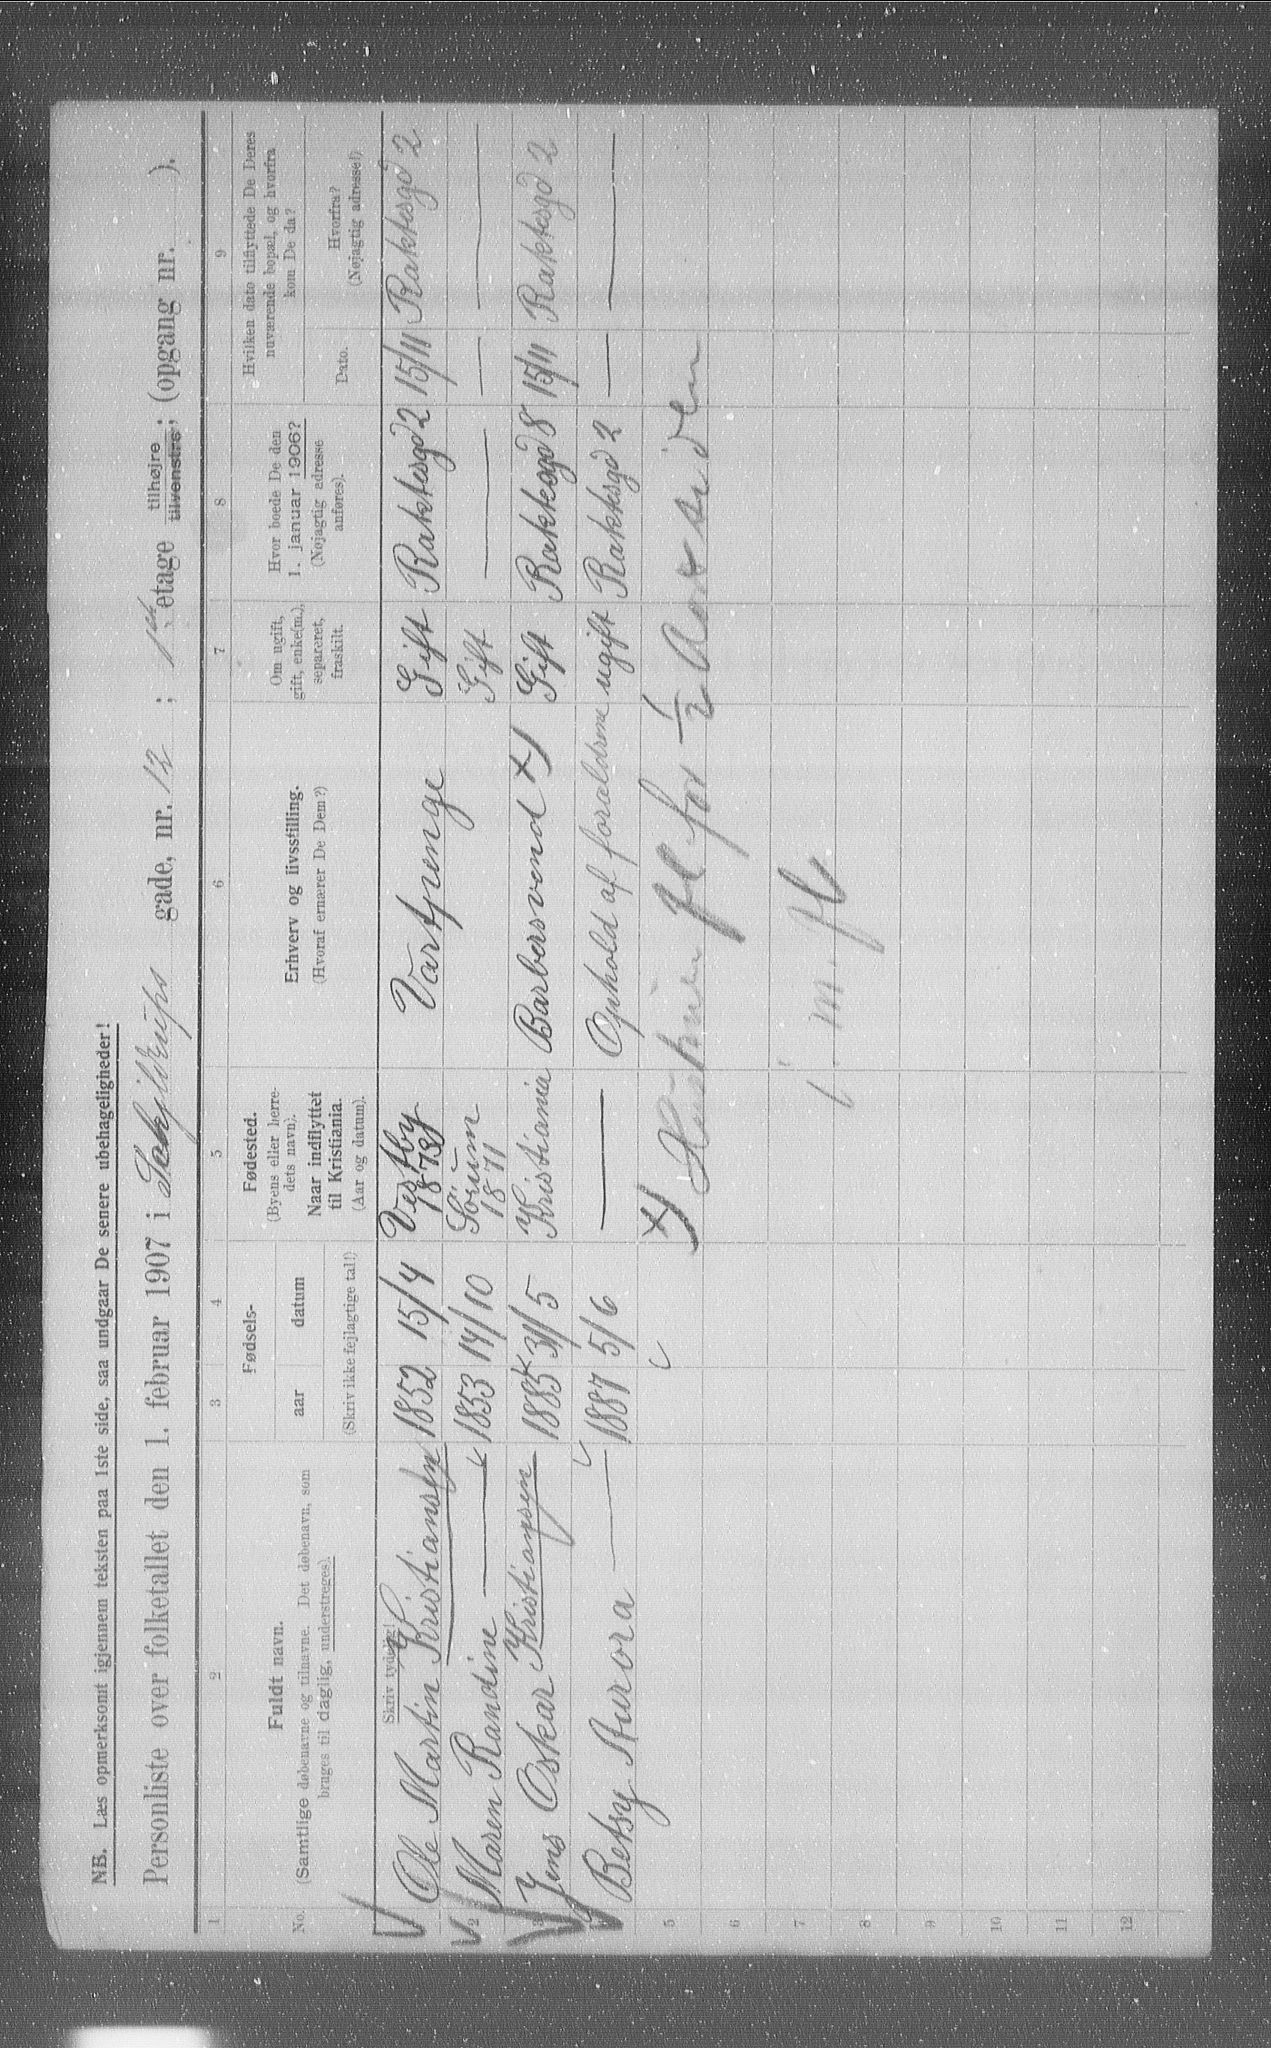 NB. Læs opmerksomt igjennem teksten paa 1ste side, saa undgaar De senere ubehageligheder!
Personliste over folketallet den 1. februar 1907 i gade, nr. 12 ; 1ste etage tilhøjre tilvenstre; (opgang nr. ).
1 2 3 4 5 6 7 8 9
No.
Fuldt navn.
(Samtlige døbenavne og tilnavne. Det døbenavn, som
bruges til daglig, understreges).
Fødsels-
aar datum
(Skriv ikke fejlagtige tal!)
Fødested.
(Byens eller herre-
dets navn).
Naar indflyttet
til Kristiania.
(Aar og datum).
Erhverv og livsstilling.
(Hvoraf ernærer De Dem?)
Om ugift,
gift, enke(m.),
separeret,
fraskilt.
Hvor boede De den
1. januar 1906?
(Nøjagtig adresse
anføres).
Hvilken dato tilflyttede De Deres
nuværende bopæl, og hvorfra
kom De da?
Dato.
Hvorfra?
(Nøjagtig adresse!)
Skriv tydelig!
Ole Martin Kristiansen 1852 15/4 Vestby 1873 Vartpenge Gift Rakkesgd 2 15/11 Rakkesgd 2
2 Maren Randine — 1853 14/10 Sörum 1871 Gift — — —
3 Jens Oskar Kristiansen 1885 31/5 Kristiania Barbersvend x) Gift Rakkegd 8 15/11 Rakkesgd 2
Betsy Aurora — 1887 5/6 — Ophold af forældrene ugift Rakksgd 2 — —
5 x) fl for 1/2 Aar siden
6
7 m. fl
8
9
10
11
12